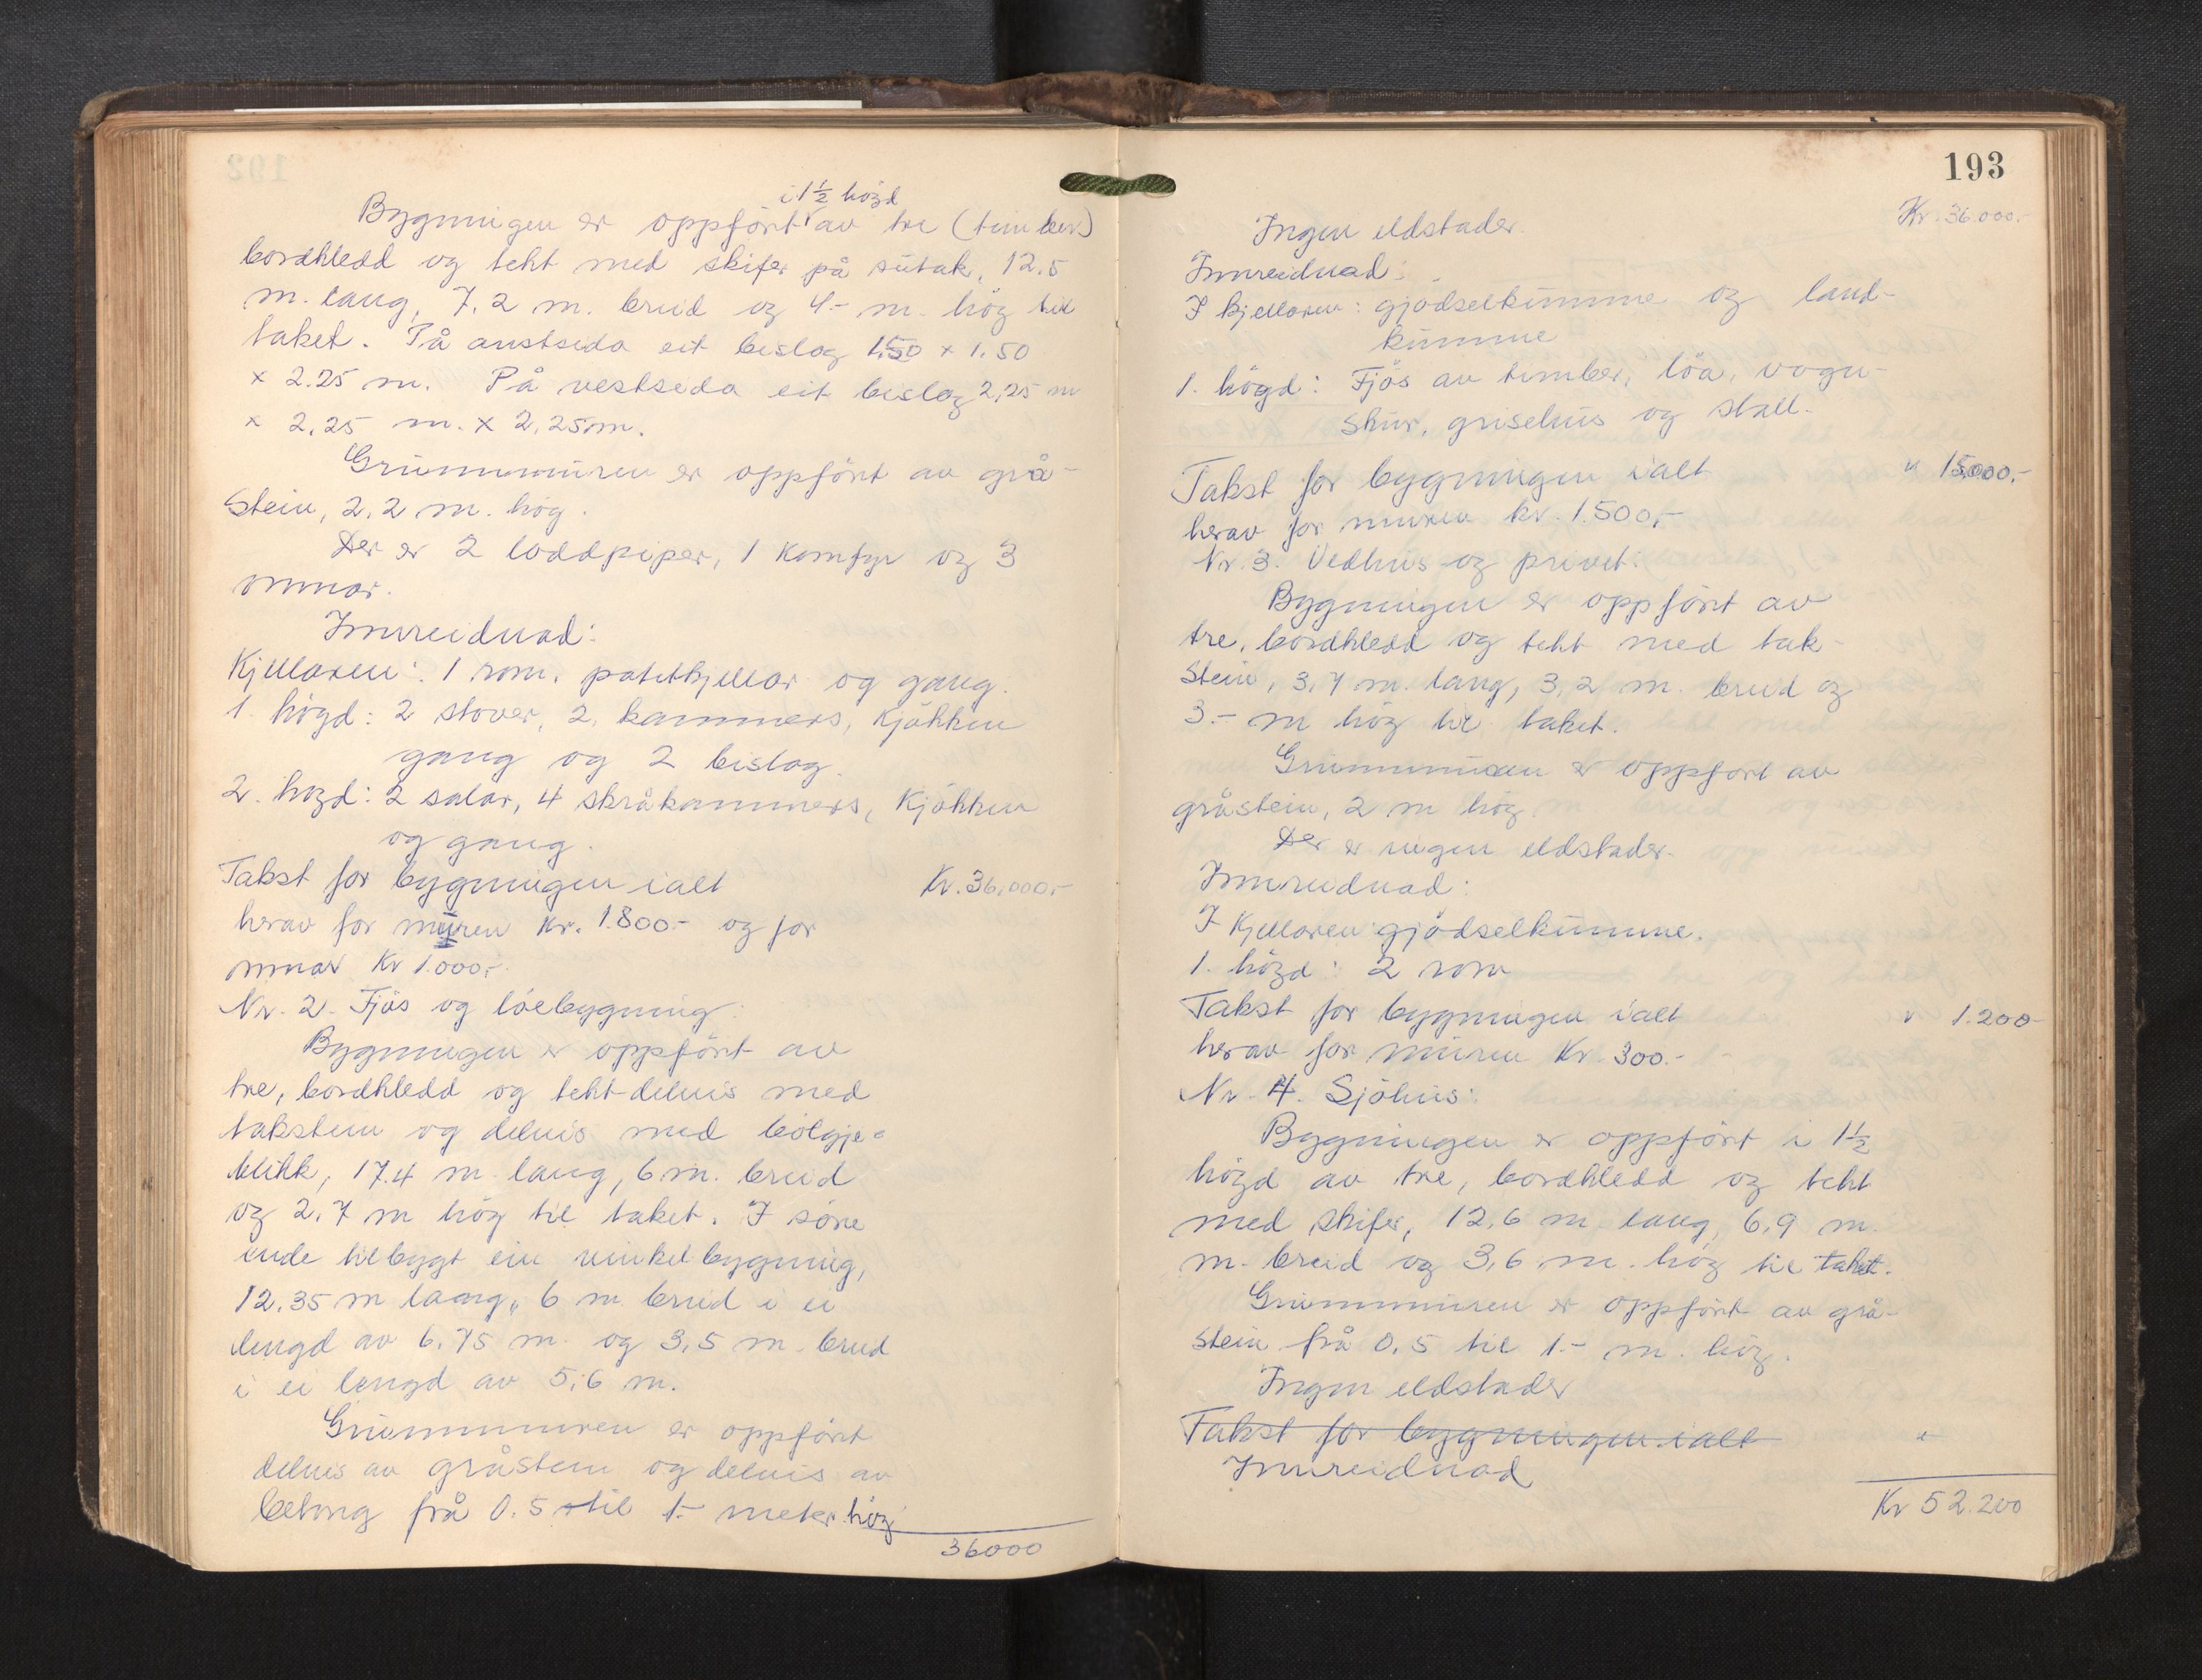 i 1½ högd
Bygningen er oppfört av tre (timber)
bordkledd og tekt med skifer på sutak, 12.5
m. lang, 7.2 m. breid og 4.- m. hög til
taket. På austsida eit bislag 1.50 x 1.50
x 2.25 m. På vestsida eit bislag 2,25 m
x 2.25 m. x 2.25 m.
Grunnmuren er oppfört av grå-
stein, 2.2 m. hög.
Der er 2 loddpiper, 1 komfyr og 3
omnar.
Innreidnad:
Kjellaren: 1 rom, potetkjellar og gang.
1. högd: 2 stover, 2 kammers, kjökken
gang og 2 bislag.
2. högd: 2 salar, 4 skråkammers, kjökken
og gang.
Takst for bygningen ialt Kr. 36.000.-
herav for muren Kr. 1.800.- og for
omnar Kr 1.000.-
Nr. 2. Fjös og löebygning.
Bygningen er oppfört av
tre, bordkledd og tekt delvis med
takstein og delvis med bölgje-
blikk, 17.4 m. lang, 6 m. breid
og 2.7 m hög til taket. I söre
ende tilbygt ein vinkelbygning,
12.35 m lang, 6 m breid i ei
lengd av 6.75 m. og 3,5 m. breid
i ei lengd av 5,6 m.
Grunnmuren er oppfört
delvis av gråstein og delvis av
betong frå 0.5 til 1.- meter hög
36000
193
Kr. 36.000.-
Ingen eldstader.
Innreidnad:
I kjellaren: gjödselkumme og land-
kumme
1. högd: Fjös av timber, löa, vogn-
skur, grisehus og stall.
Takst for bygningen ialt " 15.000.-
herav for muren kr. 1.500.-
Nr. 3. Vedhus og privet:
Bygningen er oppfört av
tre, bordkledd og tekt med tak-
stein, 3,7 m. lang, 3,2 m. breid og
3.- m hög til taket.
Grunnmuren er oppfört av
gråstein, 2 m hög.
Der er ingen eldstader.
Innreidnad:
I Kjellaren gjödselkumme.
1. högd: 2 rom
Takst for bygningen ialt " 1.200-
herav for muren Kr. 300.-
Nr. 4. Sjöhus:
Bygningen er oppfört i 1½
högd av tre, bordkledd og tekt
med skifer, 12,6 m lang, 6,9 m.
m. breid og 3,6 m. hög til taket.
Grunnmuren er oppfört av grå-
stein frå 0.5 til 1.- m. hög.
Ingen eldstader
Takst for bygningen ialt "
Innreidnad
Kr 52.200